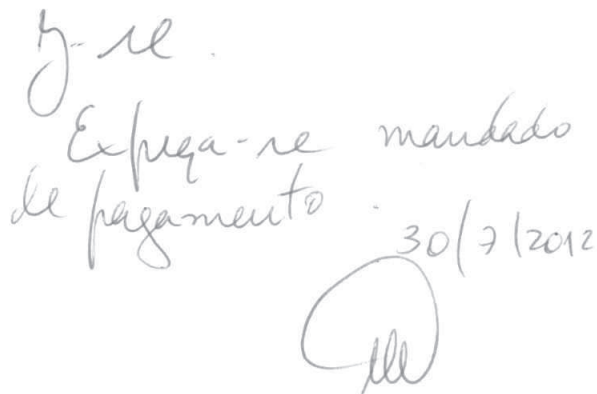 J-se.
Expeça-se mandado
de pagamento.
30/7/2012